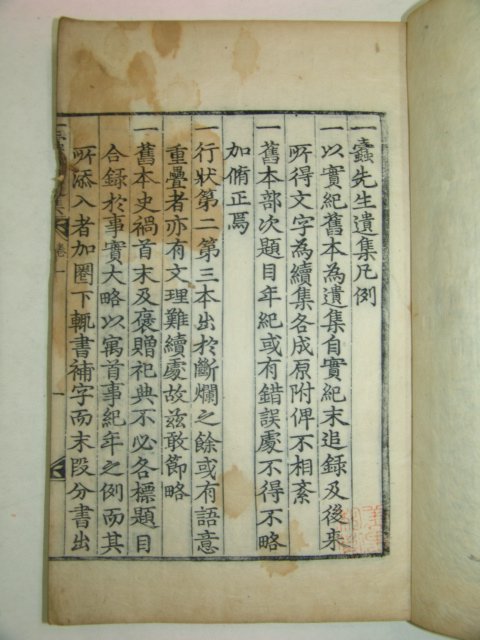 一蠹先生遺集凡例
一以實紀舊本為遺集自實紀末追錄及後來
所得文字為續集各成原附俾不相紊
一舊本部次題目年紀或有錯誤處不得不略
加脩正焉
一行狀第二第三本出於斷爛之餘或有語意
重疊者亦有文理難續處故玆敢節略
一舊本史禍首末及褒贈祀典不必各標題目
合録於事實大略以寓首事紀年之例而其
所添入者加圈下輒書補字而末段分書出
卷一
一